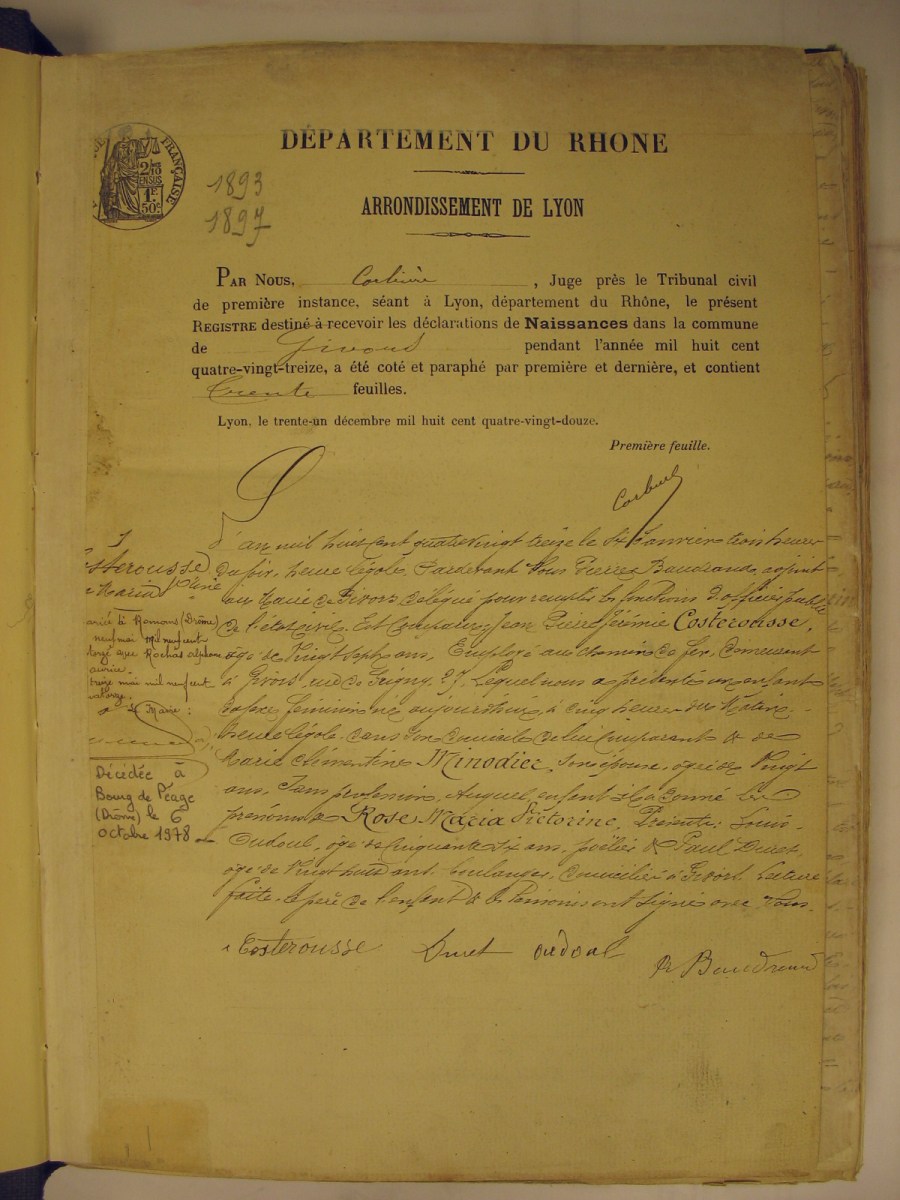 FRANÇAISE
2/10 EN SUS
1F 50c
DÉPARTEMENT DU RHONE
1893
1897
ARRONDISSEMENT DE LYON
PAR NOUS, , Juge près le Tribunal civil
de première instance, séant à Lyon, département du Rhône, le présent
REGISTRE destiné à recevoir les déclarations de Naissances dans la commune
de Givors pendant l'année mil huit cent
quatre-vingt-treize, a été coté et paraphé par première et dernière, et contient
Trente feuilles.
Lyon, le trente-un décembre mil huit cent quatre-vingt-douze.
Première feuille.
1
sterousse
Maria
Mariée à Romans (Drôme)
neuf mai mil neuf cent
avec Rochas alphonse
treize mai mil neuf cent
Le Maire :
Décédée à
Bourg de Péage
(Drôme) le 6
octobre 1978
L'an mil huit cent quatre vingt treize le Janvier trois heures
du soir, heure légale, Pardevant Nous Pierre Baudrand, adjoint
au Maire de Givors délégué pour remplir les fonctions d'officier public
de l'état civil, Est Comparu Jean Pierre Jérémie Costerousse,
âgé de Vingt Sept ans, Employé au chemin de fer, demeurant
à Givors, rue de Grigny, 27, Lequel nous a présenté un enfant
du sexe féminin né aujourd'hui, à cinq heures du Matin,
heure légale, dans son domicile de lui Comparant & de
Marie Clémentine Minodier, son épouse, âgée de Vingt
ans, Sans profession, Auquel enfant il a donné les
prénoms de Rose Maria Victorine, Présents : Louis
Oudoul, âgé de Cinquante Six ans, & Paul Duret,
âgé de Vingt huit ans, boulanger, domiciliés à Givors. Lecture
faite, le père de l'enfant & les témoins ont signé avec Nous.
Costerousse Duret oudoul
Baudrand